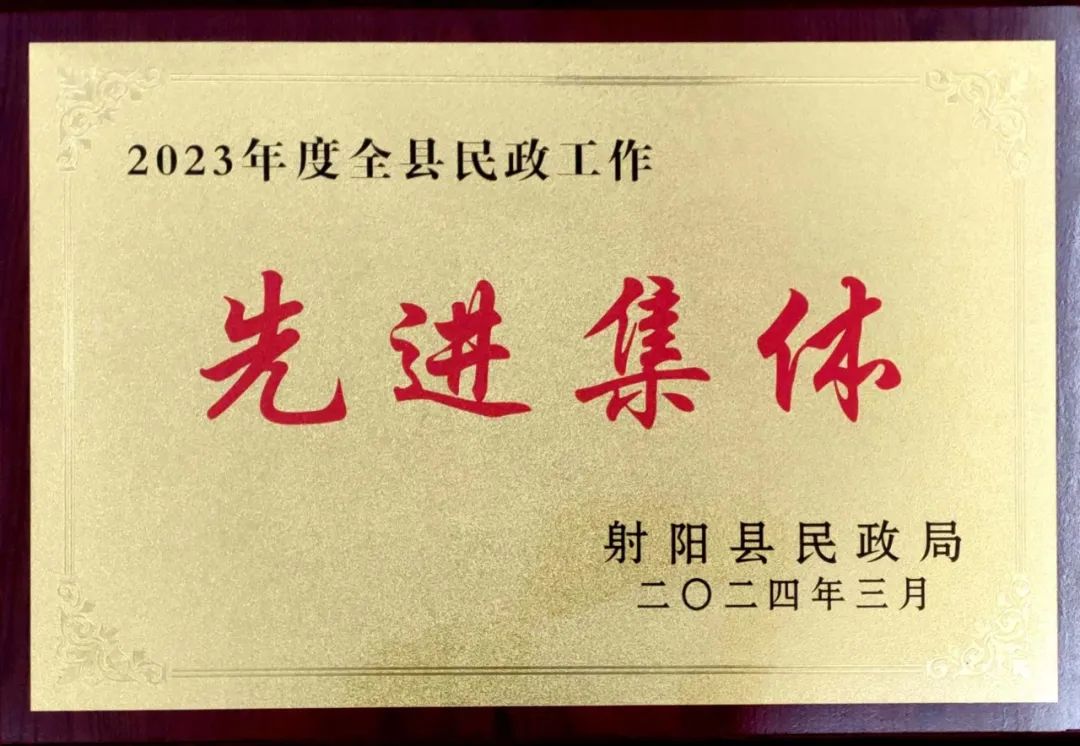 2023年度全县民政工作
先进集体
射阳县民政局
二〇二四年三月